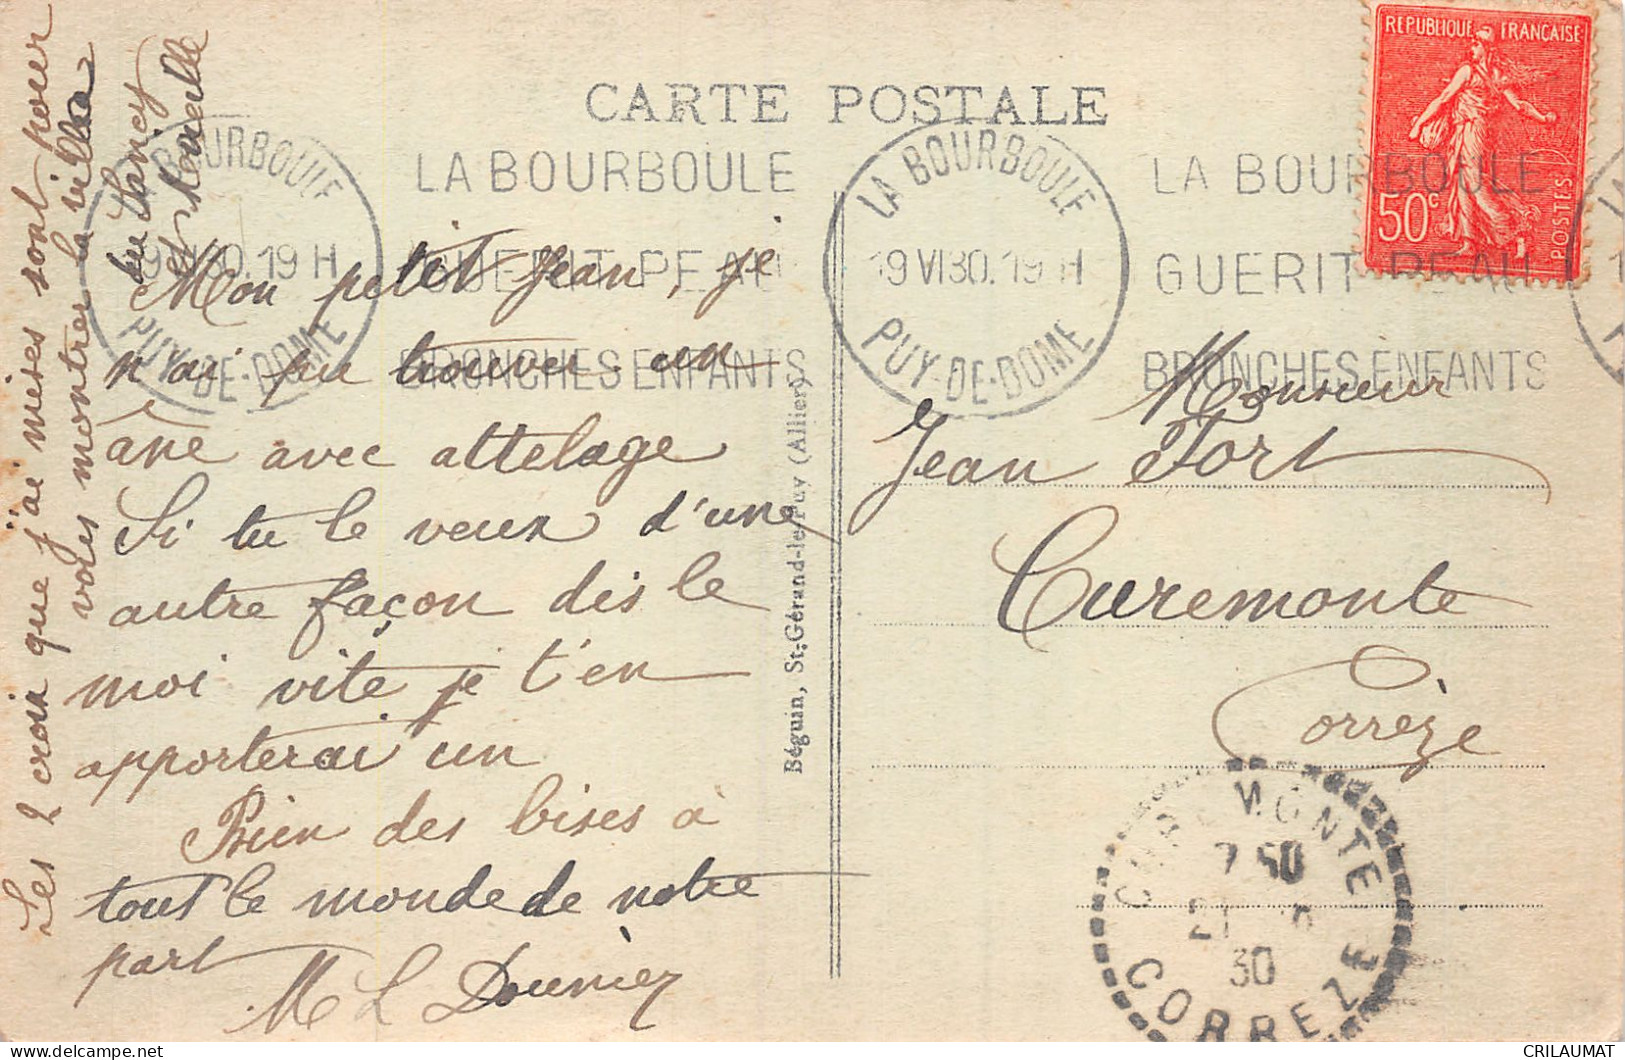 CARTE POSTALE
REPUBLIQUE FRANÇAISE
50c
POSTES
LA BOURBOULE
GUERIT PEAU
BRONCHES ENFANTS
LA BOURBOULE
19 VI 30. 19 H
PUY-DE-DOME
LA BOURBOULE
GUERIT PEAU
BRONCHES ENFANTS
LA BOURBOULE
19 VI 30. 19 H
PUY-DE-DOME
Mon petit Jean, je
n'ai pu trouver un
âne avec attelage
Si tu le veux d'une
autre façon dis le
moi vite je t'en
apporterai un
Bien des bises à
tout le monde de notre
part
M L Dounier
Les 2 croix que j'ai mises sont pour
vous montrer la villa
du Sancy
et Monette
Béguin, St-Gérand-le-Puy (Allier)
Monsieur
Jean Fort
Curemonte
Corrèze
CUREMONTE
7 50
21
30
CORREZE
CRILAUMAT